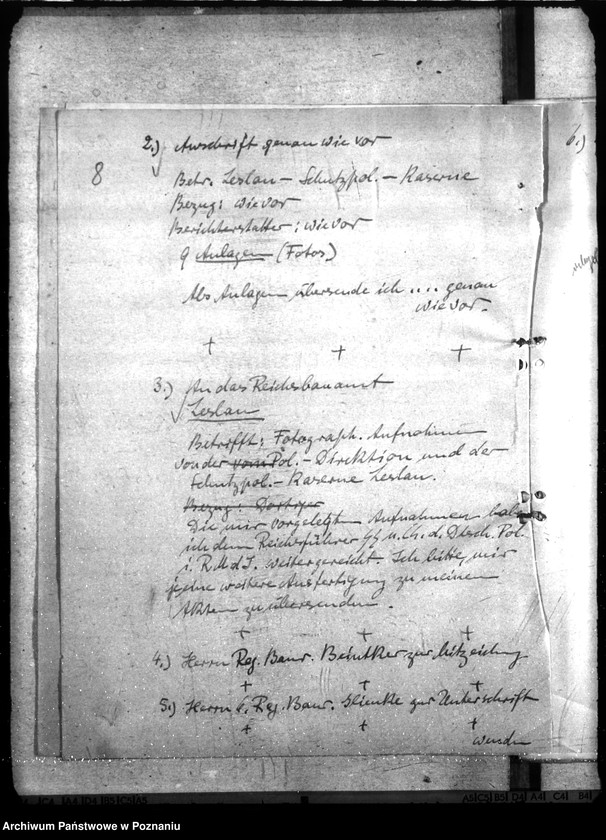 2.) Anschrift genau wie vor
8
Betr. Leslau - Schutzpol. - Kaserne
Bezug: wie vor
Berichterstatter: wie vor
9 Anlagen (Fotos)
Als Anlagen übersende ich .... genau
wie vor.
+ + +
3.) An das Reichsbauamt
Leslau
Betrifft: Fotograph. Aufnahmen
von der vom Pol. - Direktion und der
Schutzpol. - Kaserne Leslau.
Bezug: Dortiges
Die mir vorgelegten Aufnahmen habe
ich dem Reichsführer SS u. Ch. d. Dtsch. Pol.
i. R. M d J. weitergereicht. Ich bitte, mir
je eine weitere Ausfertigung zu meinen
Akten zu übersenden.
+ + +
4.) Herrn Reg. Baur. Beintker zur Mitzeichng
+ +
5.) Herrn Reg. Baur. Glienke zur Unterschrift
+ + +
6.)
A5 C5 B5 D4 A4 C4 B4
Archiwum Państwowe w Poznaniu